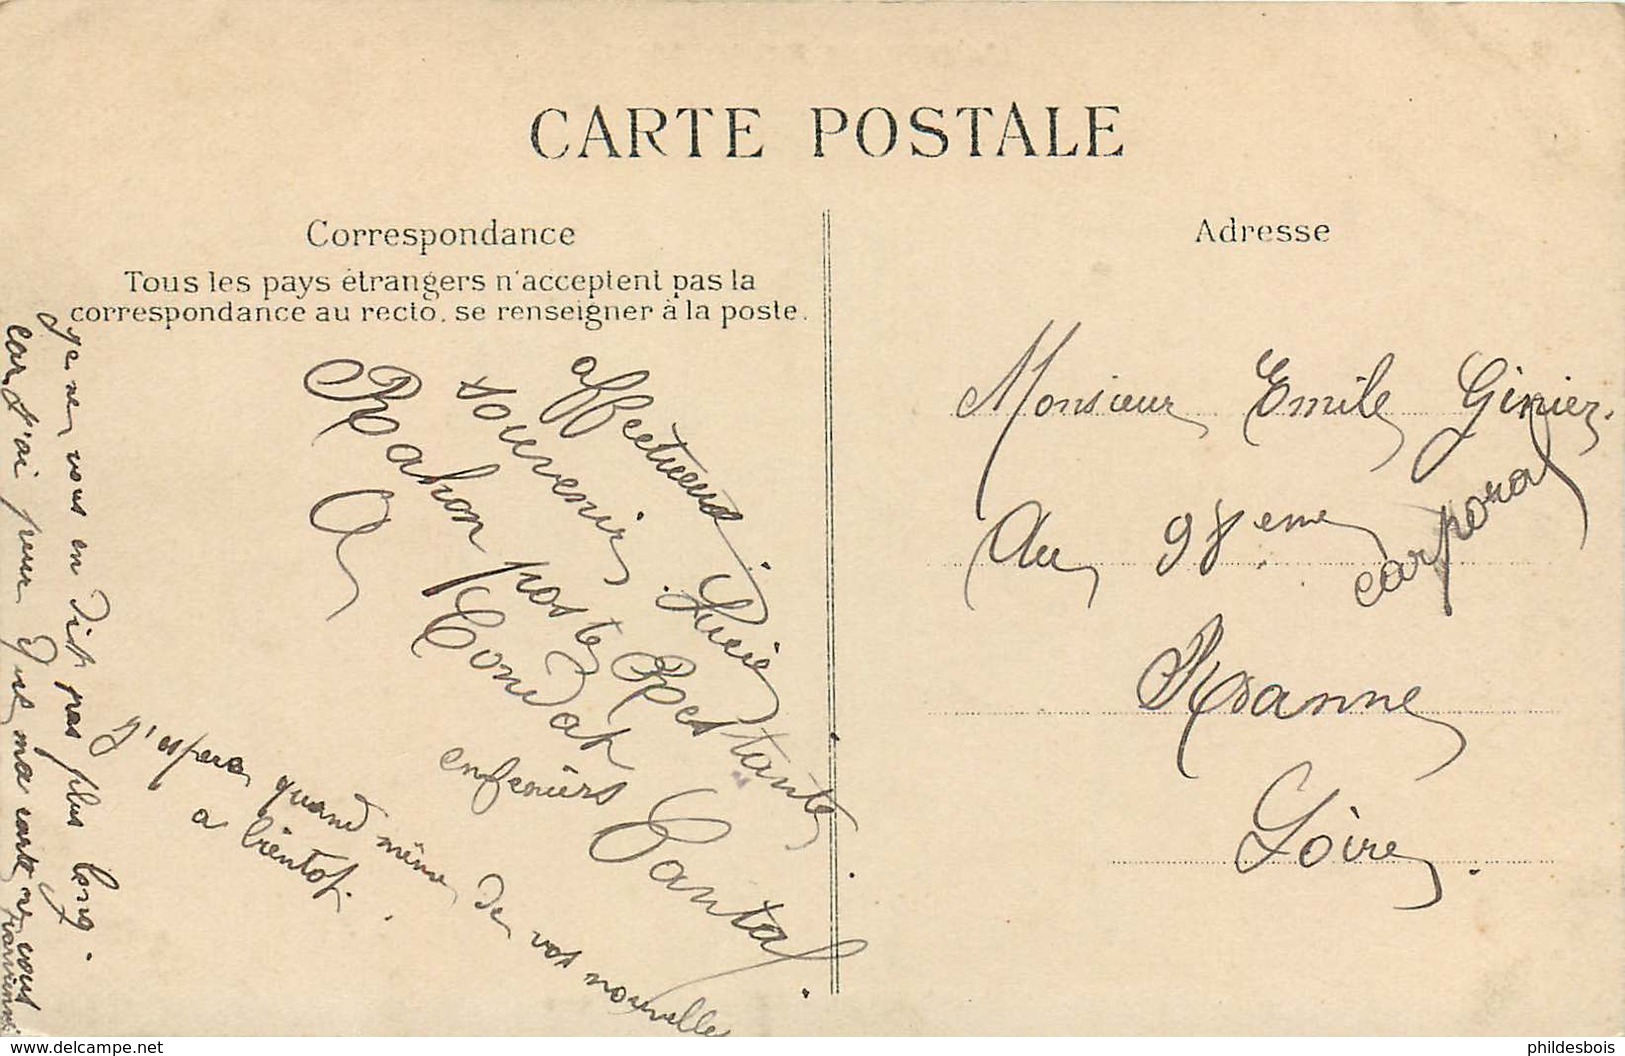 CARTE POSTALE
Correspondance
Tous les pays étrangers n'acceptent pas la
correspondance au recto, se renseigner à la poste.
Adresse
Monsieur Emile Ginier
caporal
Au 98eme
Roanne
Loire
affectueux
souvenir. Lucie
Rahon poste Restante
A Condat
enfeniers
Cantal
J'espere quand même de vos nouvelle
a bientot.
je ne vous en dit pas plus long.
car j'ai peur que ma carte ne vous
parviennes
www.delcampe.net
phildesbois